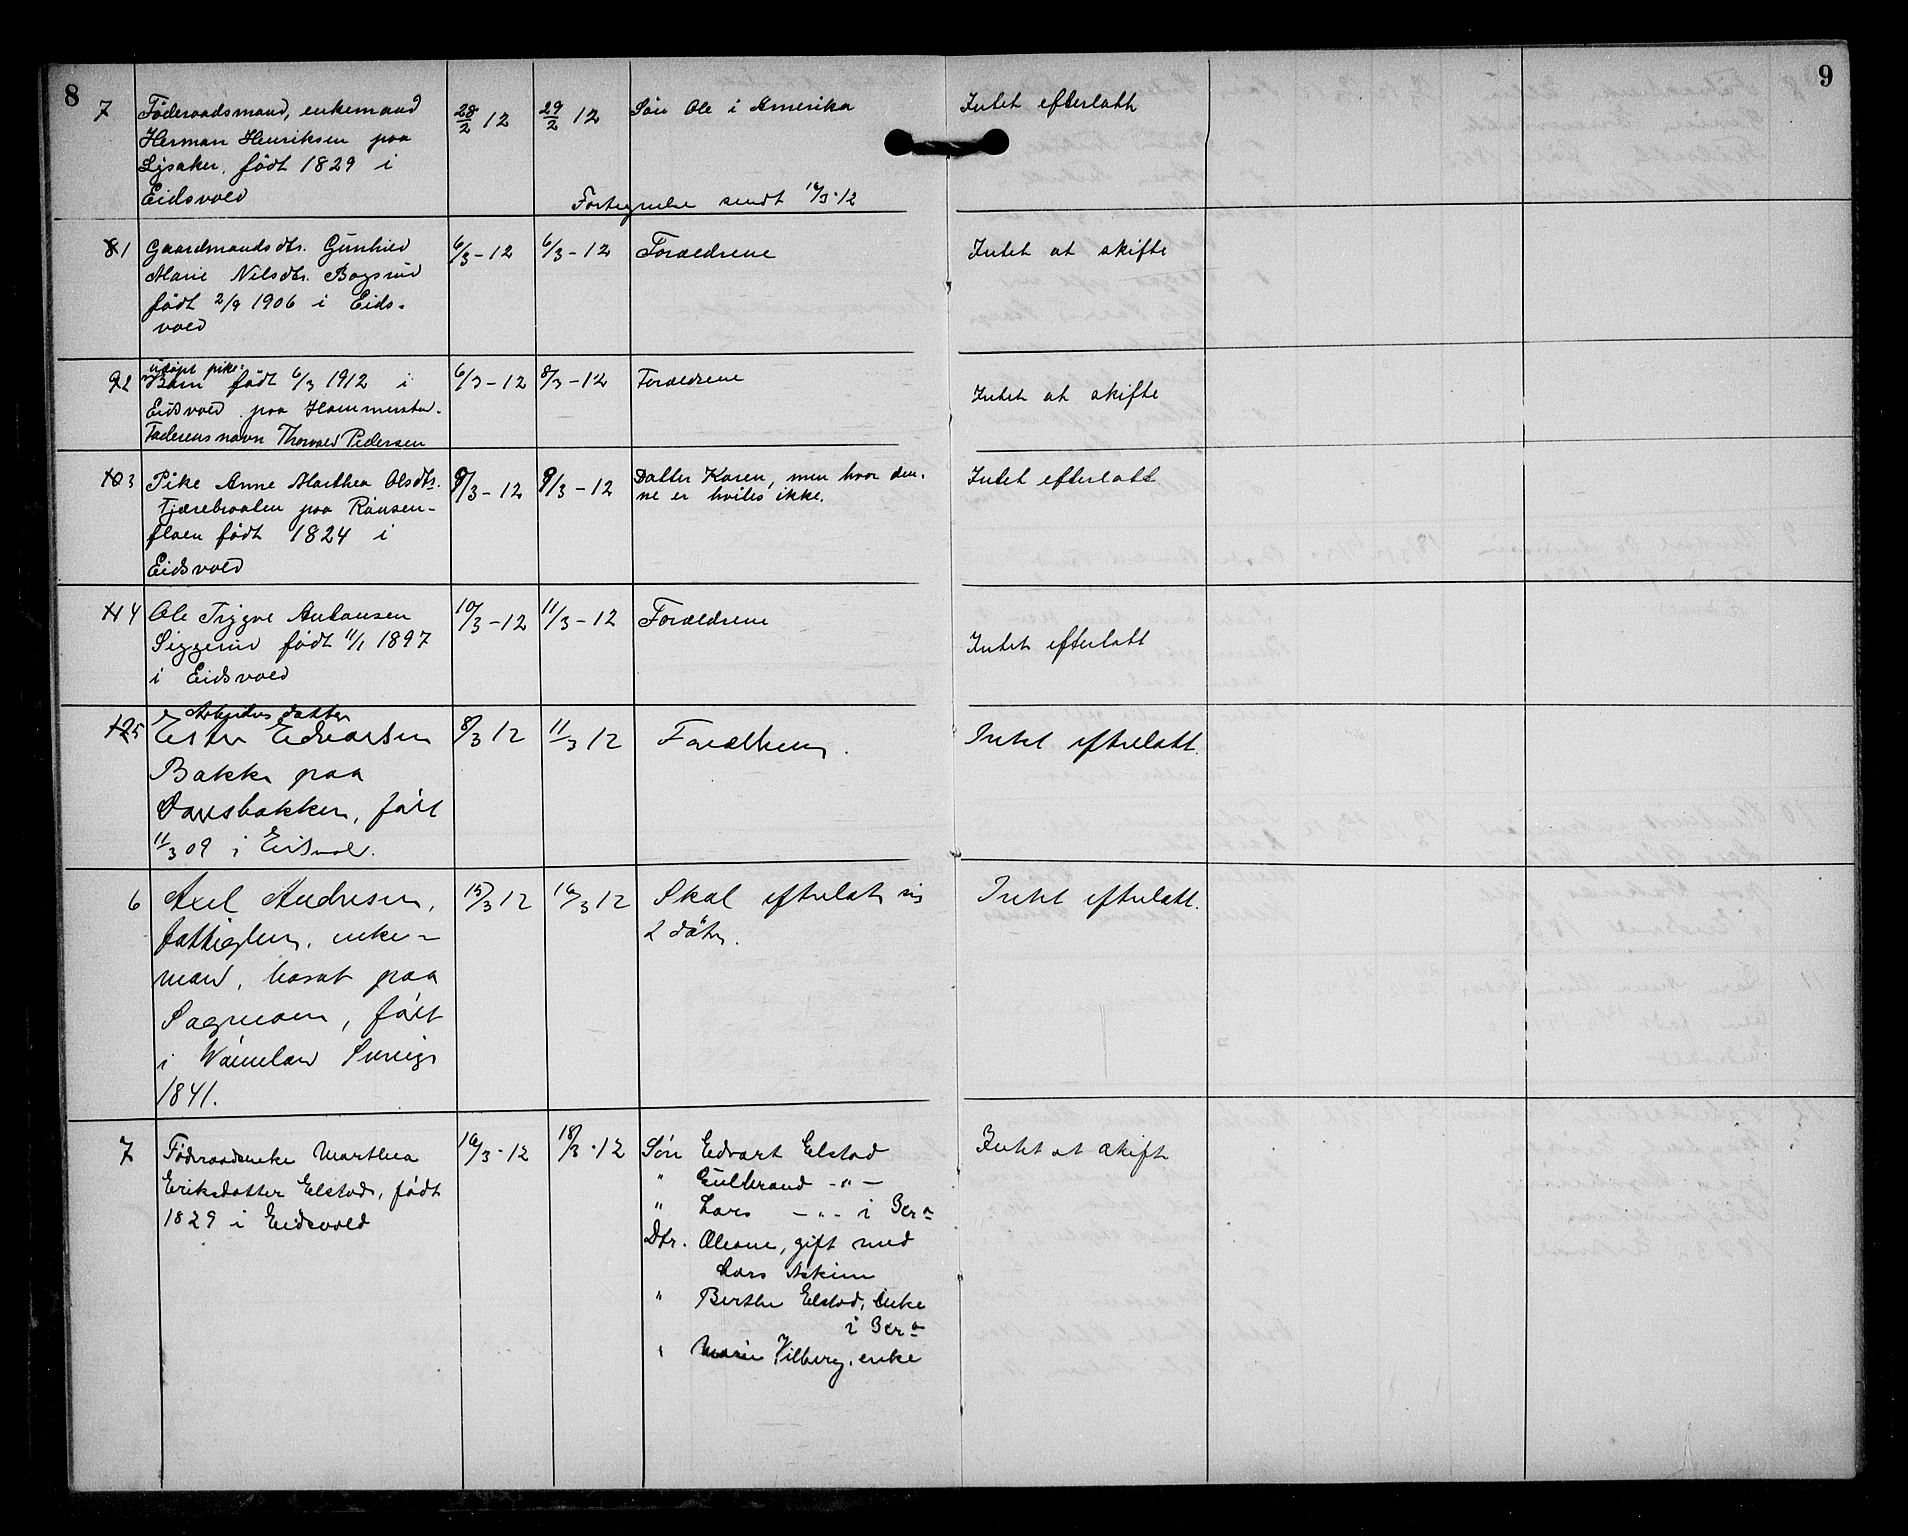 8
9
7 Föderaadsmand, enkemand 28/2 12 29/2 12 Sön Ole i Amerika Intet efterladt
Herman Henriksen paa
Lysaker, födt 1829 i
Eidsvold
Fortegnelse sendt 16/3-12
81 Gaardmandsdtr. Gunhild 6/3-12 6/3-12 Forældrene Intet at skifte
Marie Nilsdtr. Bogsrud
födt 2/9 1906 i Eids-
vold
udöpt pike-
92 Barn födt 6/3 1912 i 6/3-12 8/3-12 Forældrene Intet at skifte
Eidsvold paa Hammerstad.
Faderens navn Thorvald Pedersen
103 Pike Anne Marthea Olsdtr. 8/3-12 9/3-12 Datter Karen, men hvor den- Intet efterlatt
Tjærebraaten paa Raasen- ne er vites ikke.
floen födt 1824 i
Eidsvold
114 Ole Trygve Antonsen 10/3-12 11/3-12 Forældrene Intet efterlatt
Siggerud födt 11/1 1897
i Eidsvold
Arbeiders datter
125 Ester Edvardsen 8/3 12 11/3 12 Forældrene. Intet efterlatt.
Bakke paa
födt
11/3 09 i Eidsvold.
6 Axel Andresen, 15/3 12 16/3 12 Skal efterlat sig Intet efterlatt.
fattiglem, enke- 2 dötre.
mand, bosat paa
Sagmoen, födt
i Wärmland Sverige
1841.
7 Föderaadsenke Marthea 16/3-12 18/3-12 Sön Edvart Elstad Intet at skifte
Eriksdatter Elstad, födt " Gulbrand -"-
1829 i Eidsvold " Lars -"- i
Dtr. Oleane, gift med
Lars Askim
" Berthe Elstad, Enke
i
" Marie Vilberg, enke